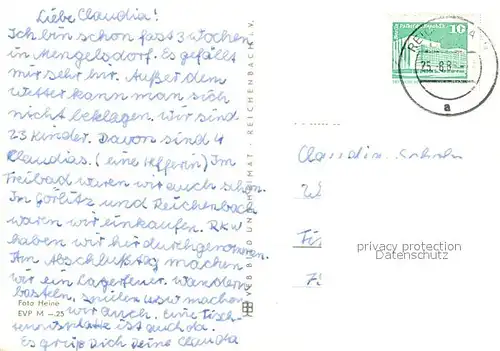 Liebe Claudia!
Ich bin schon fast 3 Wochen
in Mengelsdorf. Es gefällt
mir sehr gut. Außer dem
Wetter kann man sich
nicht beklagen. Wir sind
23 Kinder. Davon sind 4
Claudias. (eine Helferin) Im
Freibad waren wir auch schon.
In Görlitz und Reichenbach
waren wir einkaufen. RKW
haben wir hier durchgenommen.
Am Abschlußtag machen
wir ein Lagerfeuer. Wandern
basteln, spielen usw machen
wir auch. Eine Tisch-
tennisplatte ist auch da.
Es grüßt dich deine Claudia
Foto Heine
EVP M -.25
VEB BILD UND HEIMAT · REICHENBACH I. V.
10
25. 8.8
a
Claudia
privacy protection
Datenschutz